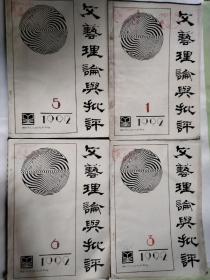 文藝理論與批評
5
1992
文藝理論與批評
1
1992
文藝理論與批評
6
1992
文藝理論與批評
3
1992